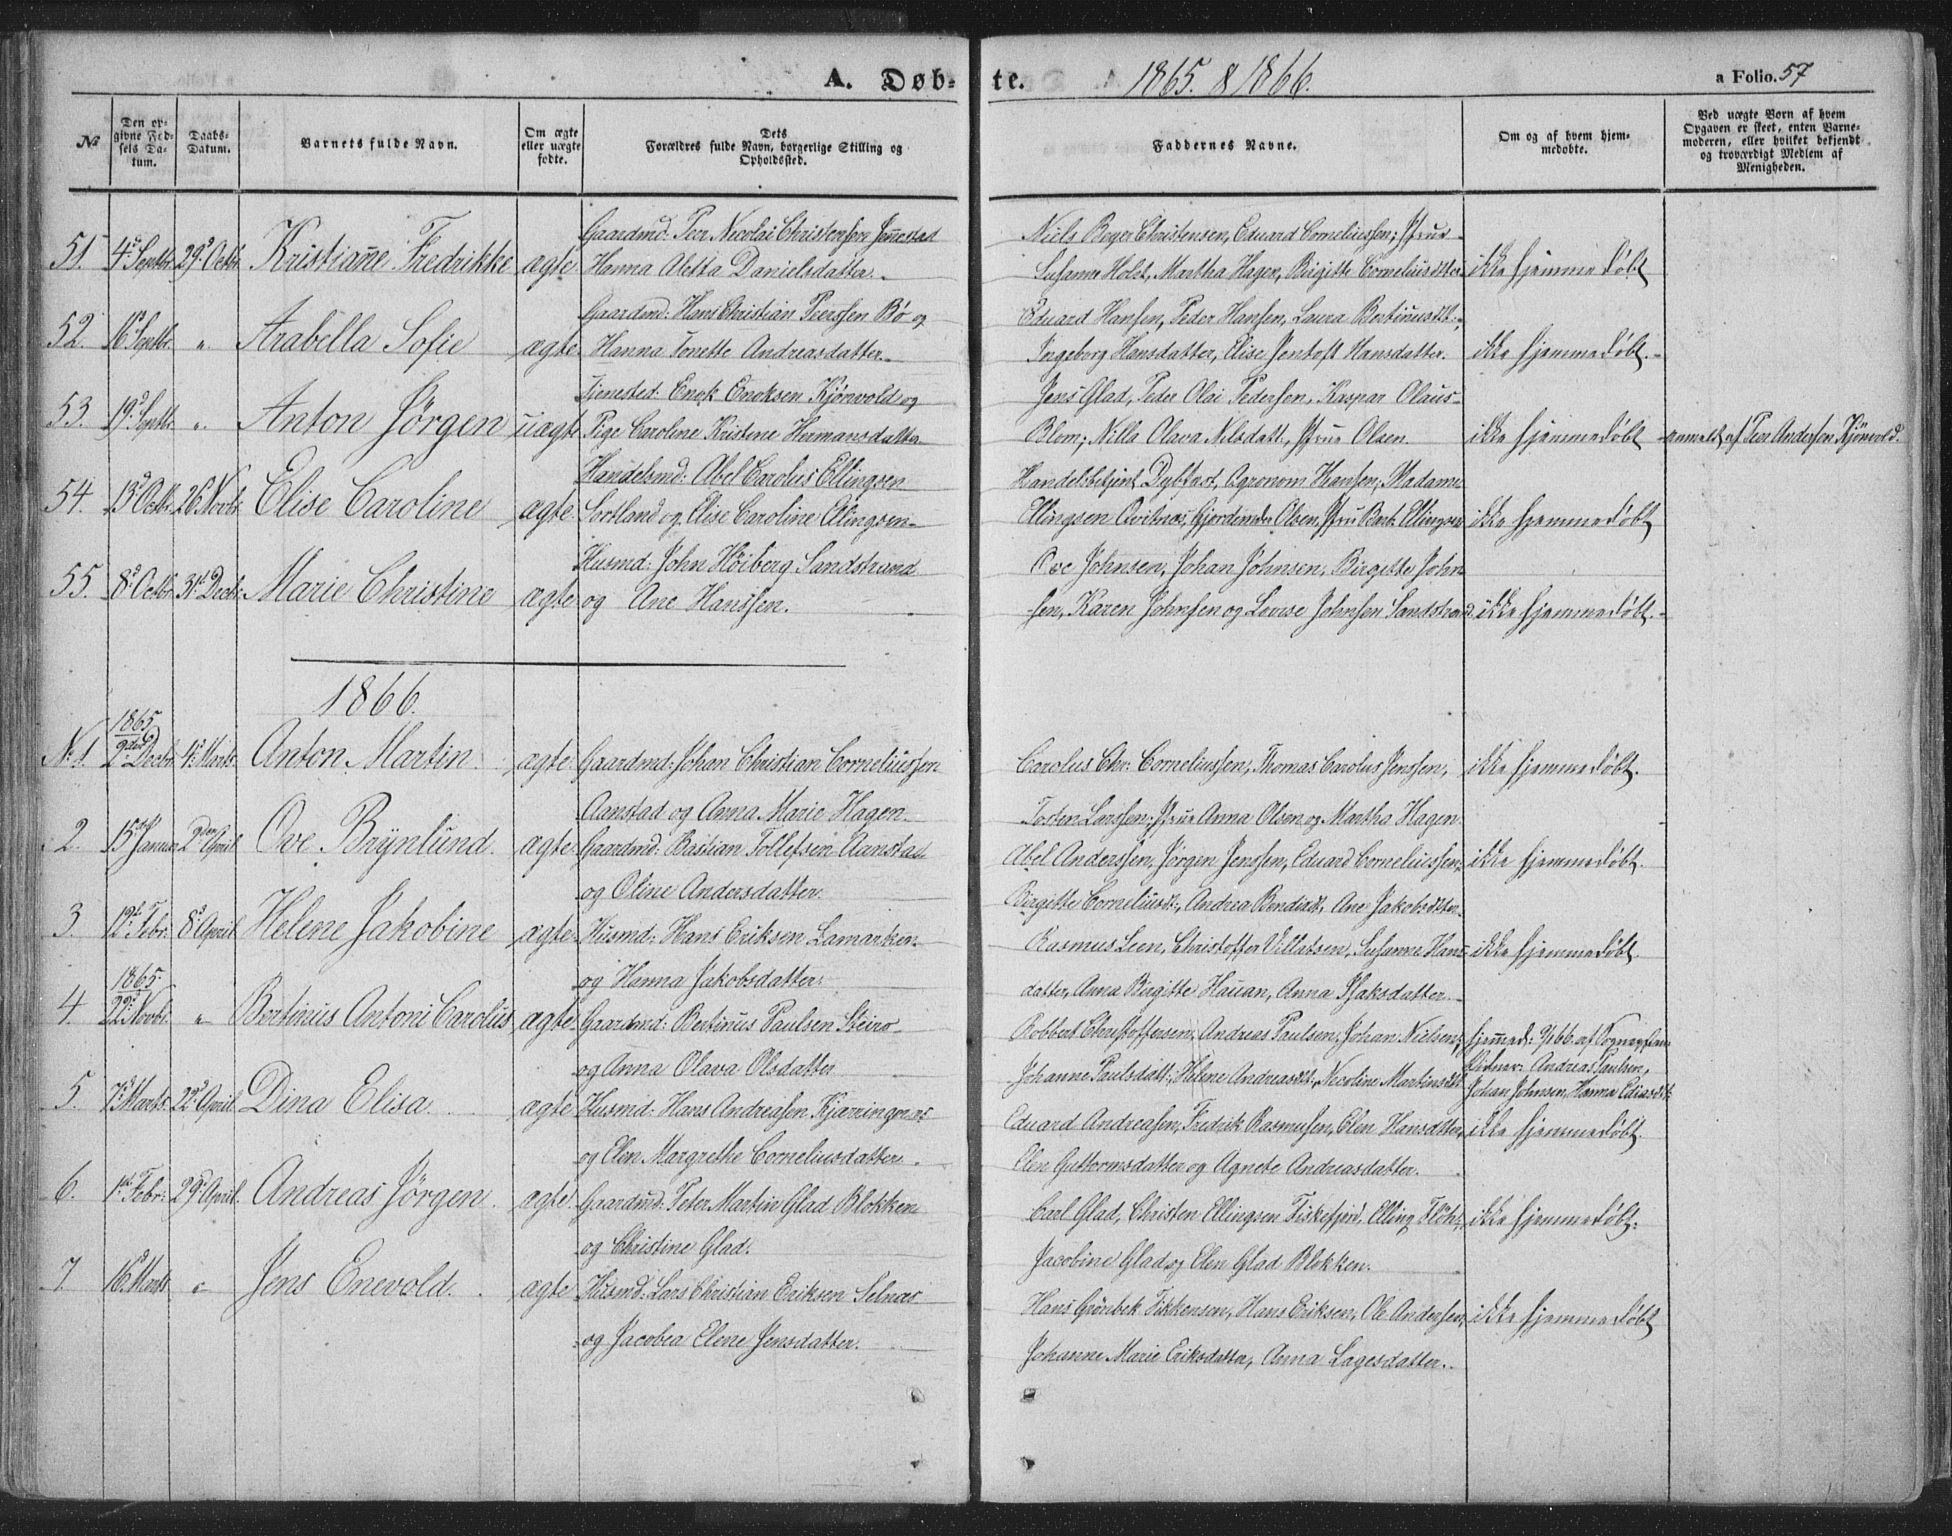 A. Døb-
te. 1865 & 1866.
a Folio. 57
No
Den op-
givne Fød-
sels Da-
tum.
Daabs-
Datum.
Barnets fulde Navn.
Om ægte
eller uægte
fødte.
Dets
Forældres fulde Navn, borgerlige Stilling og
Opholdssted.
Faddernes Navne.
Om og af hvem hjem-
medøbte.
Ved uægte Børn af hvem
Opgaven er skeet, enten Barne-
moderen, eller hvilket bekjendt
og troværdigt Medlem af
Menigheden.
51. 4de Septbr. 29de Octbr. Kristianne Fredrikke ægte
Gaardmd: Peer Nicolai Christensen Jennestad
Hanna Aletta Danielsdatter.
Niels Boger Christensen, Eduard Corneliussen; Pfrue
Susanne Holst, Martha Hagen, Birgitte Corneliusdtter ikke hjemmedøbt
52. 16de Septbr. " Arabella Sofie ægte
Gaardmd: Hans Christian Peerssen Bø og
Hanna Tonette Andreasdatter.
Eduard Hansen, Peder Hansen, Laura Bertinusdt.,
Ingeborg Hansdatter, Elise Jentoft Hansdatter. ikke hjemmedøbt.
53. 19de Septbr. " Anton Jörgen uægte
Tjenested: Enok Enoksen Kjørvold og
Pige Caroline Kristine Hermansdatter
Jens Glad, Peder Olai Pedersen, Kaspar Olaus-
Blom; Nilla Olava Nilsdatt., Pfrue Olsen. ikke hjemmedøbt anmeldt af Peer Andersen Kjönvold.
54. 13de Octbr. 26 Novbr. Elise Caroline ægte
Handelsmd: Abel Carolus Ellingsen
Sortland og Elise Caroline Ellingsen
Handelsbetjent Dybfest, Agronom Hansen, Madame
Ellingsen Qvitnæs, Gjordemder Olsen, Pfru Barb. Ellingsen ikke hjemmedøbt
55. 8de Octbr. 31te Decbr. Marie Christine ægte
Husmd: John Höiberg Sandstrand
og Ane Hanssen.
Ove Johnsen, Johan Johnsen, Birgitte John-
sen, Karen Johnsen og Lovise Johnsen Sandstrand. ikke hjemmedøbt.
1866.
1865
No 1 2den Decbr. 4de Marts Anton Martin. ægte
Gaardmd: Johan Christian Corneliussen
Aanstad og Anna Marie Hagen
Carolus Chr: Corneliussen, Thomas Carolus Jenssen, ikke hjemmedøbt.
Tosten Larssen, Pfrue Anna Olsen og Martha Hagen
2. 15de Januar 2den April Ove Brynlund. ægte
Gaardmd: Bastian Tollefsen Aanstad
og Oline Andersdatter.
Abel Anderssen, Jørgen Jenssen, Eduard Corneliussen, ikke hjemmedøbt.
Birgitte Corneliusdt., Andrea Bendixdt, Ane Jakobsdtter.
3. 12te Febr. 8de April Helene Jakobine ægte
Husmd: Hans Eriksen Lamarken
og Hanna Jakobsdatter.
Rasmus Leen, Christoffer Villatsen, Susanne Hans- ikke hjemmedøbt.
datter, Anna Birgitte Hauan, Anna Isaksdatter.
1865.
4. 22de Novbr. " Bertinus Antoni Carolus ægte
Gaardmd: Bertinus Paulsen Steiro
og Anna Olava Olsdatter
Robbert Christoffersen, Andreas Paulsen, Johan Nielsen, hjemmed:
Johanne Paulsdatt., Helene Andreasdt., Nicoline Martinsdt Andreas Paulsen,
Johan Johnsen, Hanna Ediasdt.
5. 7de Marts 22de April Dina Elisa ægte
Husmd: Hans Andreasen Kjærringnæs
og Elen Margrethe Corneliusdatter.
Eduard Andreasen, Fredrik Rasmusen, Elen Hansdtter, ikke hjemmedøbt.
Elen Guttormsdatter og Agnete Andreasdatter.
6. 1ste Febr. 29de April. Andreas Jörgen. ægte
Gaardmd: Peter Martin Glad Blokken
og Christine Glad.
Carl Glad, Christen Ellingsen Fiskefjord, Elling ikke hjemmedøbt.
Jacobine Glad og Elen Glad Blokken.
7. 16de Marts " Jens Enevold. ægte
Husmd: Lars Christian Eriksen Selnæs
og Jacobea Elene Jensdatter.
Hans Grönbek Fikkensen, Hans Eriksen, Ole Andersen, ikke hjemmedøbt
Johanne Marie Eriksdatter, Anna Lagesdatter.